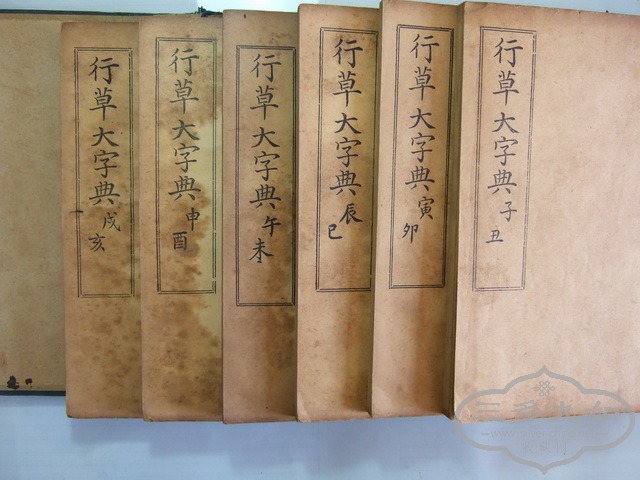 行草大字典 子丑
行草大字典 寅卯
行草大字典 辰巳
行草大字典 午未
行草大字典 申酉
行草大字典 戌亥